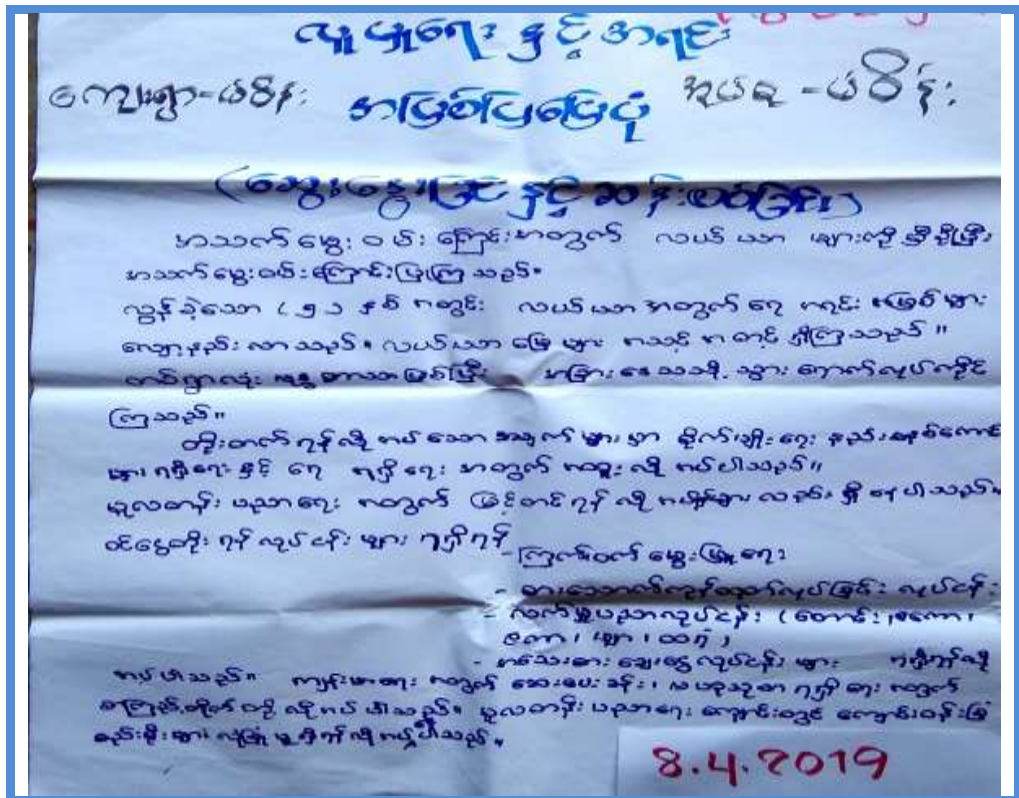 လူမှုရေး နှင့် အရင်း
ကျေးရွာ-ယမိန်း
အဖြစ်ပြမြေပုံ
အုပ်စု - ယမိန်း
(ဆွေးနွေးခြင်း နှင့် ဆန်းစစ်ခြင်း)
အသက်မွေး ဝမ်းကြောင်းအတွက် လယ်ယာ များကို မှီခိုပြီး
အသက်မွေးဝမ်းကြောင်းပြုကြ သည်။
လွန်ခဲ့သော နှစ် အတွင်း လယ်ယာအတွက် ရေ အရင်း အမြစ်များ
လျော့နည်း လာသည်။ လယ်ယာ မြေ များ အသင့် အတင့် ရှိကြသည်။
တစ်ရွာလုံး ဖြစ်ပြီး အခြားဒေသသို့ သွားရောက်လုပ်ကိုင်
ကြသည်။
တိုးတက်ရန်လိုအပ်သော အချက် များမှာ စိုက်ပျိုးရေး နည်းစနစ်ကောင်း
များ ရရှိရေး နှင့် ရေ ရရှိရေး အတွက် အထူး လိုအပ်ပါသည်။
မူလတန်း ပညာရေး အတွက် မြှင့်တင်ရန် လိုအပ်များ လည်း ရှိနေပါသည်။
ဝင်ငွေတိုး ရန် လုပ်ငန်း များ ရရှိရန်
- ကြက်ဝက် မွေးမြူရေး
- စားသောက်ကုန်ထုတ်လုပ်ခြင်း လုပ်ငန်း
- လက်မှုပညာလုပ်ငန်း (တောင်း၊ စကော၊
ဇကာ၊ ဖျာ၊ ထရံ)
- အသေးစား ချေးငွေ လုပ်ငန်း များ ရရှိရန်လို
အပ်ပါသည်။ ကျန်းမာရေး အတွက် ဆေးပေးခန်း၊ ဗဟုသုတ ရရှိရေး အတွက်
စာကြည့်တိုက် တို့ လိုအပ်ပါသည်။ မူလတန်း ပညာရေး ကျောင်းတွင် ကျောင်းဝန်းခြံ
စည်းရိုး များ လုံခြုံမှုရှိရန် လိုအပ်ပါသည်။
8.4.2019